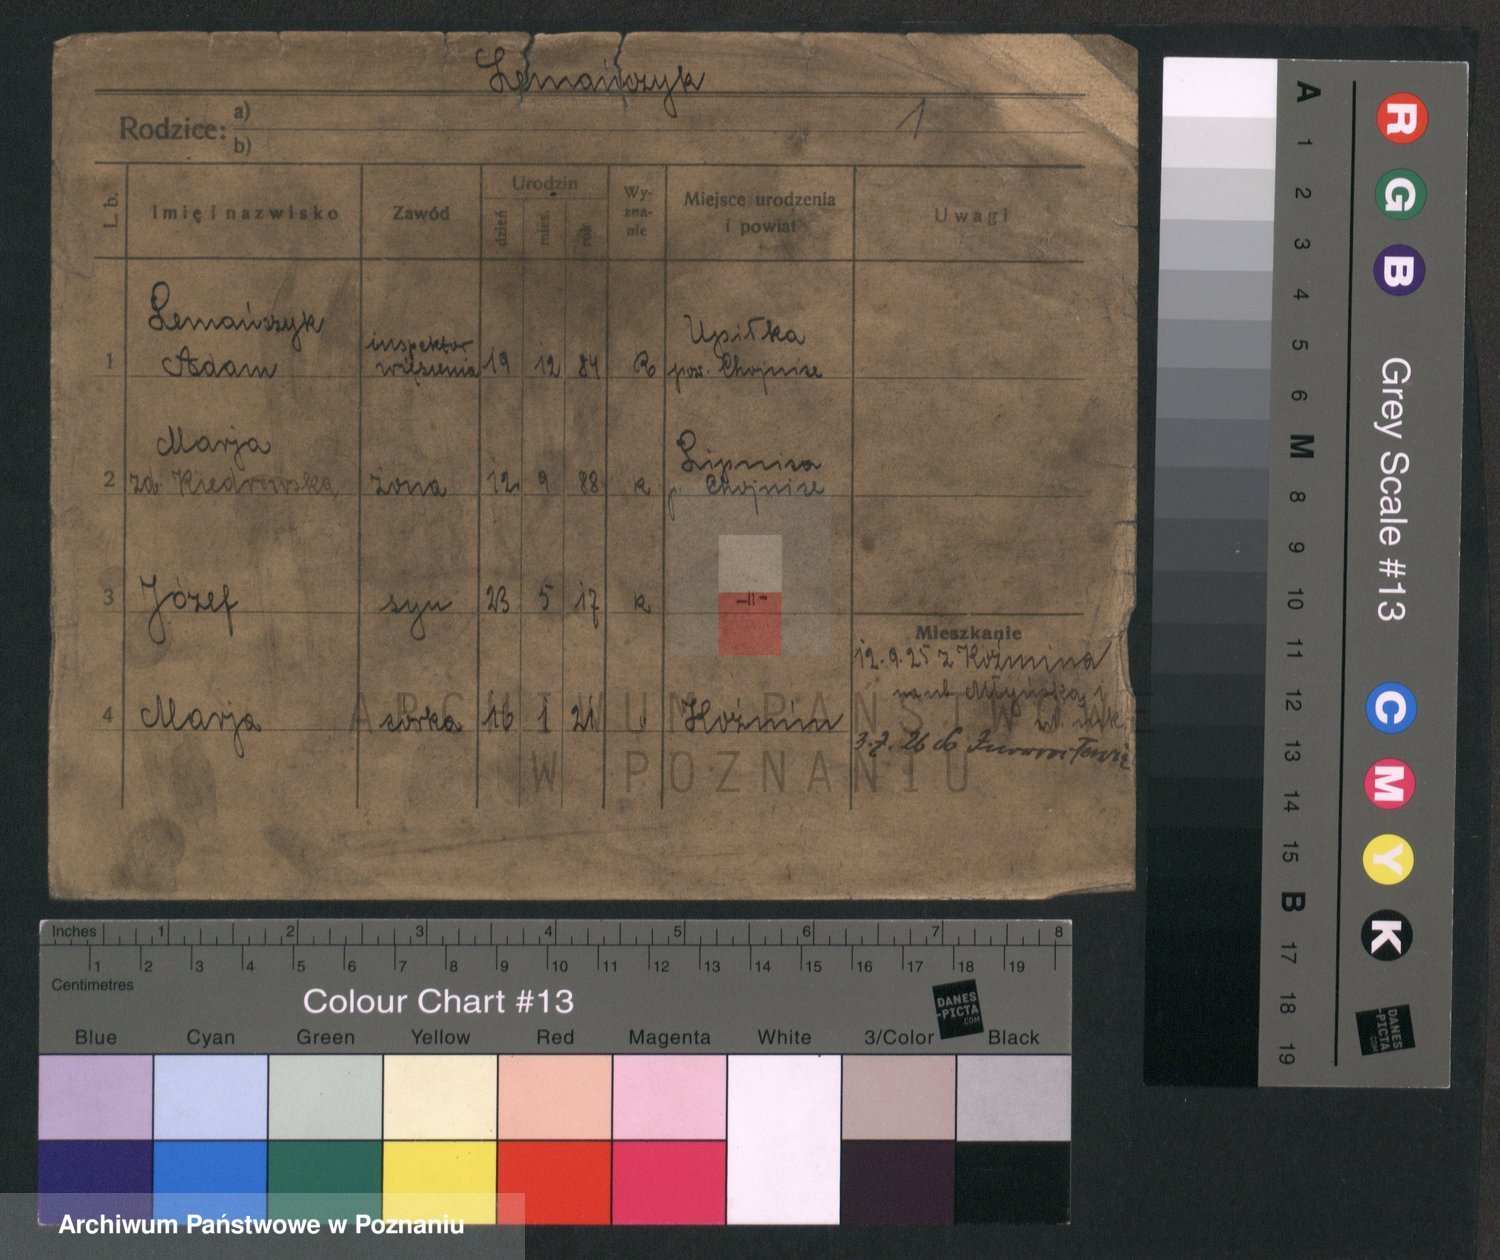 Lemańczyk
1
Rodzice: a)
b)
L. b.
Imię i nazwisko
Zawód
Urodzin
dzień
mies.
rok
Wy-
zna-
nie
Miejsce urodzenia
i powiat
Uwagi
Lemańczyk
1 Adam
inspektor
więzienia
19 12 84
R
Upiłka
pow. Chojnice
Marja
2 zd. Kiedrowska
żona
12 9 88
k
Lipnica
p. Chojnice
3 Józef
syn
23 5 17
k
-"-
4 Marja
córka
16 1 21
Koźmin
Mieszkanie
12.9.25 z Koźmina
na ul. Młyńską
3.7.26 do
ARCHIWUM PAŃSTWOWE
W POZNANIU
A 1 2 3 4 5 6 M 8 9 10 11 12 13 14 15 B 17 18 19
R G B
Grey Scale #13
C M Y K
DANES
-PICTA
.COM
Inches 1 2 3 4 5 6 7 8
1 2 3 4 5 6 7 8 9 10 11 12 13 14 15 16 17 18 19
Centimetres
Colour Chart #13
DANES
-PICTA
.COM
Blue Cyan Green Yellow Red Magenta White 3/Color Black
Archiwum Państwowe w Poznaniu